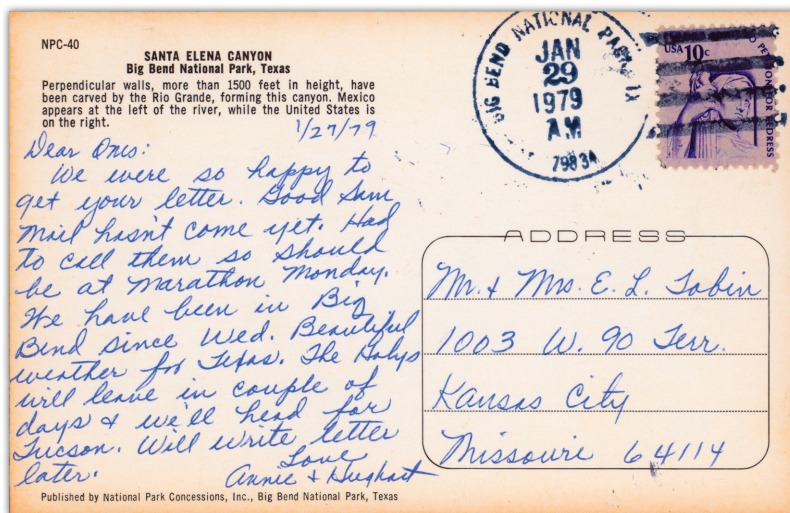 NPC-40
SANTA ELENA CANYON
Big Bend National Park, Texas
Perpendicular walls, more than 1500 feet in height, have
been carved by the Rio Grande, forming this canyon. Mexico
appears at the left of the river, while the United States is
on the right.
1/27/79
Dear Ones:
We were so happy to
get your letter. Good Sam
mail hasn't come yet. Had
to call them so should
be at Marathon Monday.
We have been in Big
Bend since Wed. Beautiful
weather for Texas. The
will leave in couple of
days & we'll head for
Tucson. Will write letter
later.
Love
Annie & Hughart
Published by National Park Concessions, Inc., Big Bend National Park, Texas
BIG BEND NATIONAL PARK, TX
JAN
29
1979
AM
79834
USA 10c
PETITION FOR REDRESS
ADDRESS
Mr. & Mrs. E. L. Tobin
1003 W. 90 Terr.
Kansas City
Missouri 64114